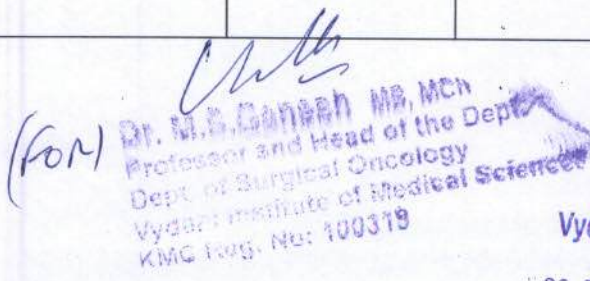 (FOR) Dr. M.S. Ganesh MS, MCh
Professor and Head of the Dept
Dept. of Surgical Oncology
Vydehi Institute of Medical Sciences
KMC Reg. No: 100319
Vyd